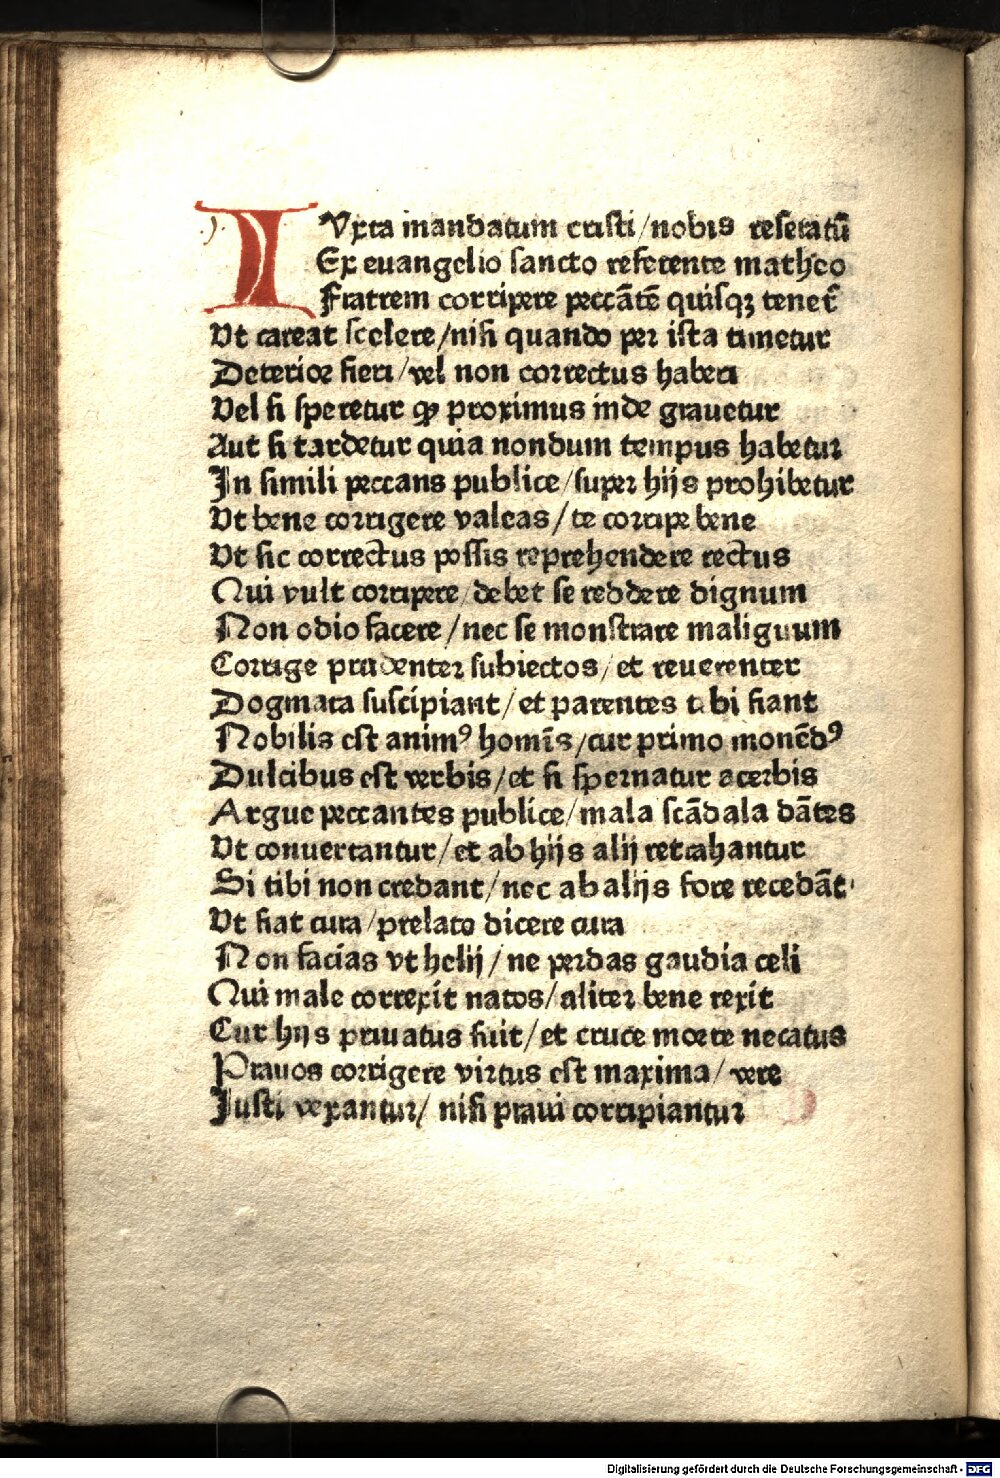 IVxta mandatum cristi/nobis reseratū
Ex euangelio sancto referente matheo
Fratrem corripere peccātē quisqꝫ tenet᷑
Vt careat scelere/nisi quando per ista timetur
Deterior fieri/vel non correctus haberi
Vel si speretur ꝙ proximus inde grauetur
Aut si tardetur quia nondum tempus habetur
In simili peccans publice/super hijs prohibetur
Vt bene corrigere valeas/te corripe bene
Vt sic correctus possis reprehendere rectus
Qui vult corripere/debet se reddere dignum
Non odio facere/nec se monstrare malignum
Corrige prudenter subiectos/et reuerenter
Dogmata suscipiant/et parentes tibi fiant
Nobilis est animꝰ homīs/cur primo monēdꝰ
Dulcibus est verbis/et si spernatur acerbis
Argue peccantes publice/mala scādala dātes
Vt conuertantur/et ab hijs alij retrahantur
Si tibi non credant/nec ab alijs fore recedāt
Vt fiat cura/prelato dicere cura
Non facias vt helij/ne perdas gaudia celi
Qui male correxit natos/aliter bene rexit
Cur hijs priuatus fuit/et cruce morte necatus
Prauos corrigere virtus est maxima/vere
Iusti vexantur/nisi praui corripiantur
Digitalisierung gefördert durch die Deutsche Forschungsgemeinschaft - DFG